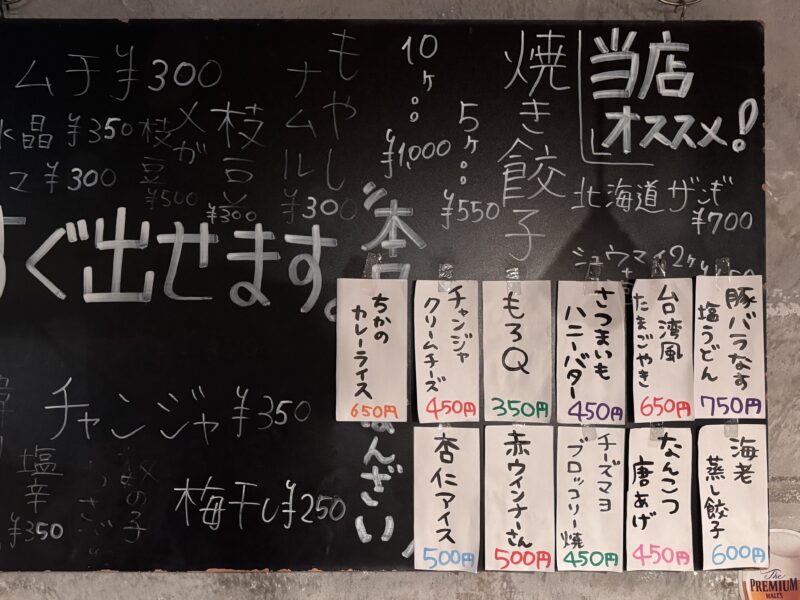 当店
オススメ!
北海道ザンギ
¥700
シュウマイ2ケ
焼き餃子
5ケ
¥550
10ケ
¥1,000
もやし
ナムル
¥300
枝豆
¥300
メガ
枝豆
¥500
ムチ ¥300
水晶 ¥350
マ ¥300
すぐ出せます。
チャンジャ ¥350
塩辛
¥350
数の子
梅干し ¥250
豚バラなす
塩うどん
750円
台湾風
たまごやき
650円
さつまいも
ハニーバター
450円
もろQ
350円
チャンジャ
クリームチーズ
450円
ちかの
カレーライス
650円
海老
蒸し餃子
600円
なんこつ
唐あげ
450円
チーズマヨ
ブロッコリー焼
450円
赤ウインナーさん
500円
杏仁アイス
500円
The
PREMIUM
MALT'S